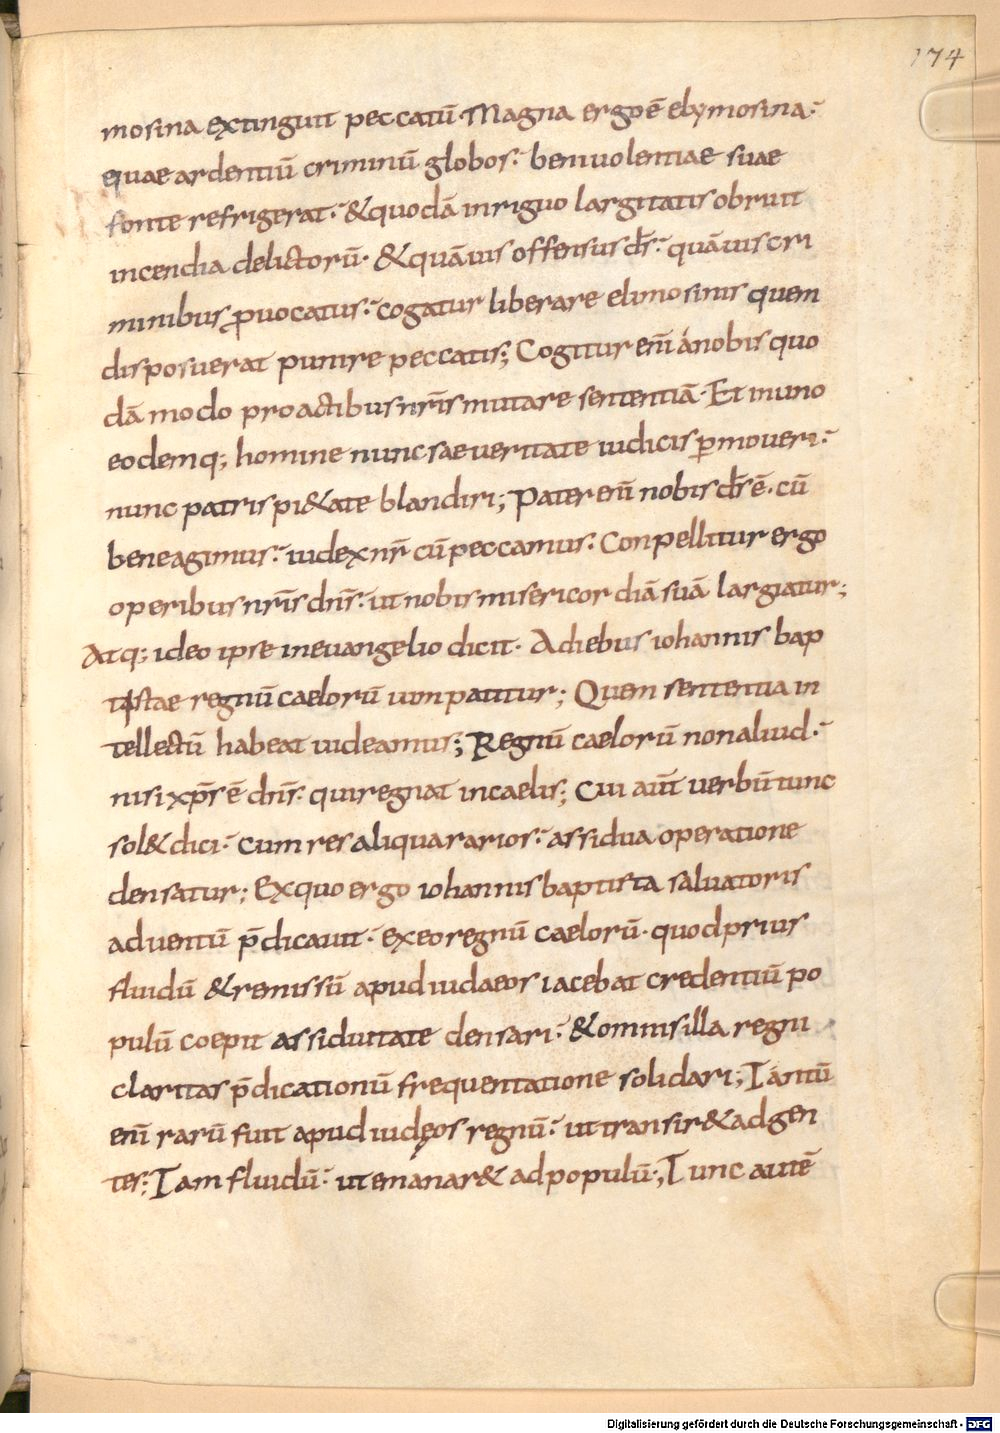 174
mosina extinguit peccatū· Magna ergo ē elymosina·
quae ardentiū criminū globos· benivolentiae suae
fonte refrigerat· & quodā inriguo largitatis obruit
incendia delictorū· & quāvis offensus d̄s· quāvis cri
minibus ꝓvocatus· cogatur liberare elimosinis quem
disposuerat punire peccatis; Cogitur eni̅ á nobis quo
dā modo pro actibus nr̄is mutare sententiā· Et in uno
eodemq; homine nunc saeveritate iudicis p̱moveri·
nunc patris pi&ate blandiri; Pater eni̅ nobis d̄s ē· cū
bene agimus· iudex nr̄ cū peccamus· Conpellitur ergo
operibus nr̄is dn̄s· ut nobis misericordiā suā largiatur;
Atq; ideo ipse in evangelio dicit· A diebus iohannis bap
tistae regnū caelorū uim patitur; Quem sententia in
tellectū habeat uideamus; Regnū caelorū non aliud·
nisi xp̄s ē dn̄s· qui regnat in caelis; Cui aut̄ verbū tunc
sol& dici· cum res aliqua rarios· assidua operatione
densatur; Ex quo ergo iohannis baptista salvatoris
adventū p̄dicavit· ex eo regnū caelorū· quod prius
fluidū & remissū apud iudaeos iacebat credentiū po
pulū coepit assiduitate densari· & omnis illa regni
claritas p̄dicationū frequentatione solidari; Tantū
eni̅ rarū fuit apud iudęos regnū· ut transir& ad gen
tes· Tam fluidū· ut emanar& ad populū·; Tunc autē
Digitalisierung gefördert durch die Deutsche Forschungsgemeinschaft - DFG